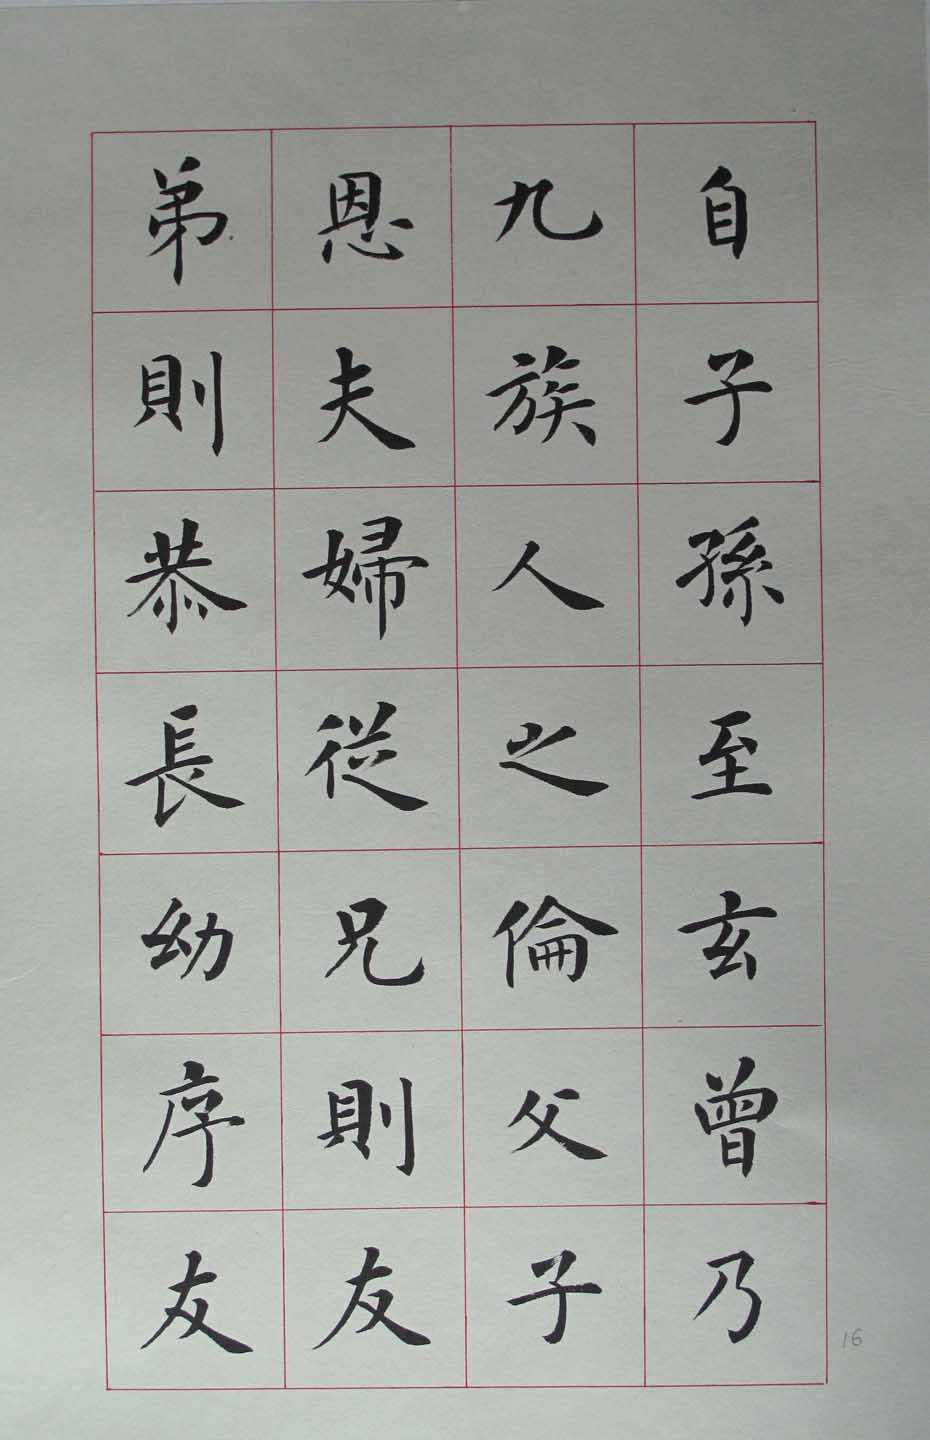 自子孫至玄曾乃
九族人之倫父子
恩夫婦從兄則友
弟則恭長幼序友
16